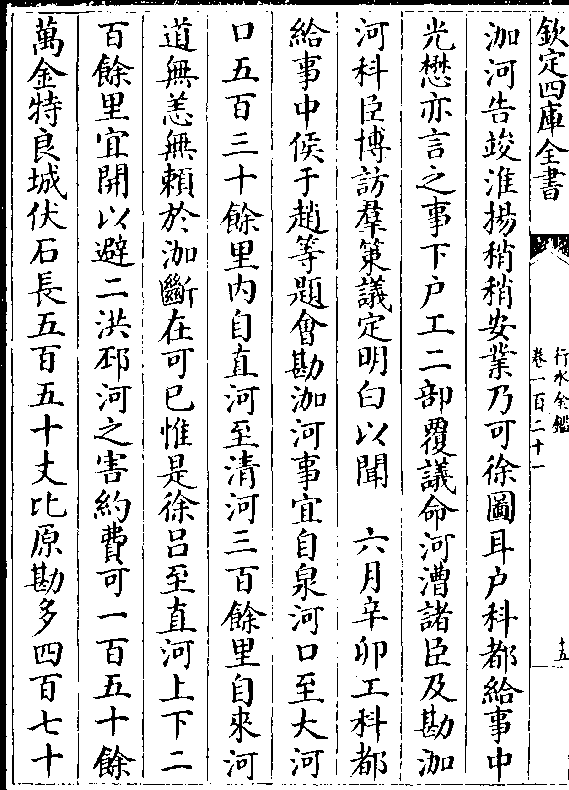 欽定四庫全書
行水金鑑
卷一百二十一
十五
泇河告竣淮揚稍稍安業乃可徐圖耳户科都給事中
光懋亦言之事下户工二部覆議命河漕諸臣及勘泇
河科臣博訪羣策議定明白以聞　六月辛卯工科都
給事中侯于趙等題會勘泇河事宜自泉河口至大河
口五百三十餘里内自直河至清河三百餘里自來河
道無恙無賴於泇斷在可已惟是徐吕至直河上下二
百餘里宜開以避二洪邳河之害約費可一百五十餘
萬金特良城伏石長五百五十丈比原勘多四百七十